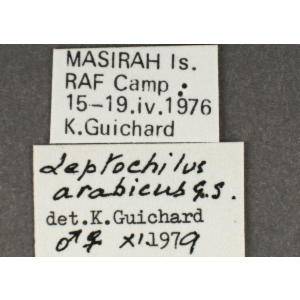 MASIRAH Is.
RAF Camp.
15-19.iv.1976
K.Guichard
Leptochilus
arabicus g.s.
det.K.Guichard
♂ ♀ XI.1979